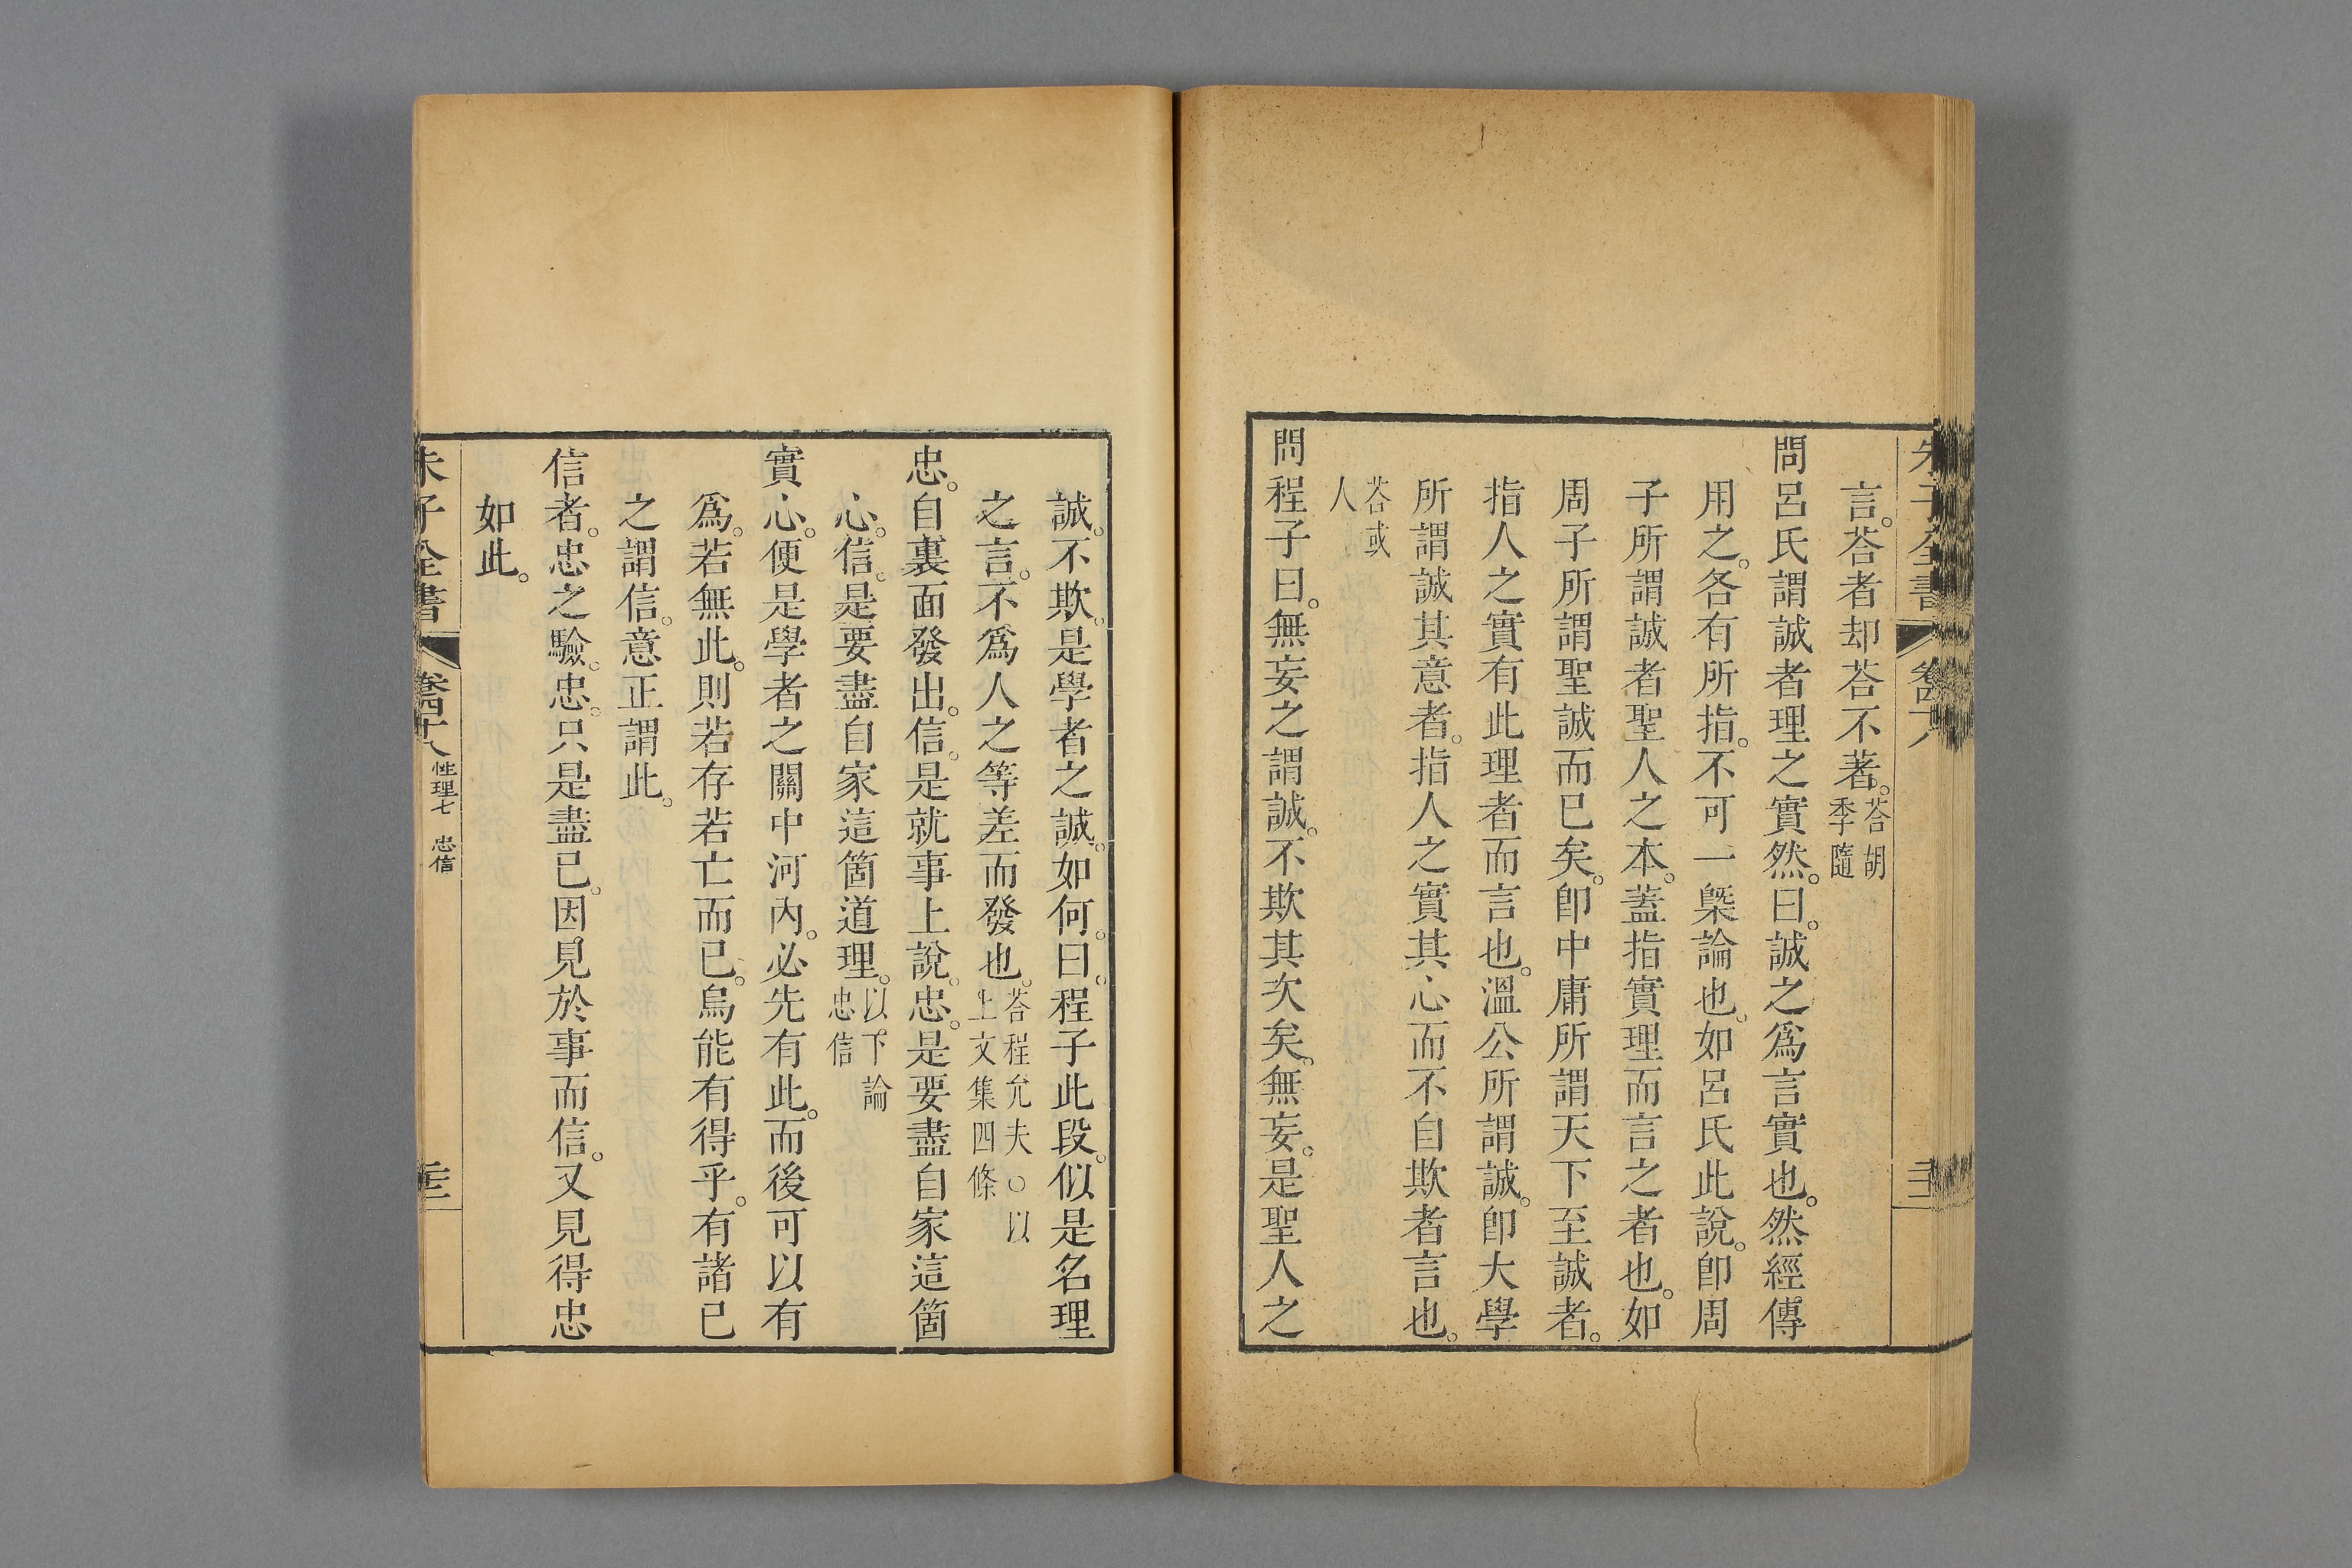 言。荅者却荅不著。荅胡季隨
問呂氏謂誠者理之實然。曰。誠之爲言實也。然經傳
用之。各有所指。不可一槩論也。如呂氏此說。卽周
子所謂誠者聖人之本。蓋指實理而言之者也。如
周子所謂聖誠而已矣。卽中庸所謂天下至誠者。
指人之實有此理者而言也。溫公所謂誠。卽大學
所謂誠其意者。指人之實其心而不自欺者言也。
荅或人
問程子曰。無妄之謂誠。不欺其次矣。無妄。是聖人之
誠。不欺。是學者之誠。如何。曰。程子此段。似是名理
之言。不爲人之等差而發也。荅程允夫○以上文集四條
忠。自裏面發出。信。是就事上說。忠。是要盡自家這箇
心。信。是要盡自家這箇道理。以下論忠信
實心。便是學者之關中河內。必先有此。而後可以有
爲。若無此。則若存若亡而已。烏能有得乎。有諸己
之謂信。意正謂此。
信者。忠之驗。忠。只是盡己。因見於事而信。又見得忠
如此。
朱子全書 卷四十八 性理七 忠信